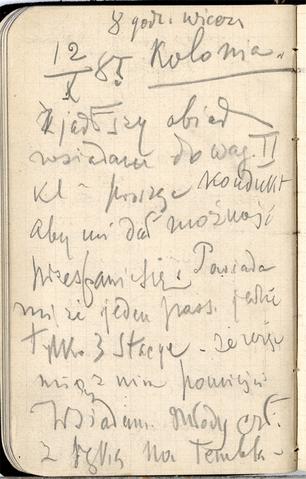 8 godz. wiecz.
12/X 85 Kolonia.
Zjadłszy obiad
wsiadam do wag. II
kl – proszę kondukt
aby mi dał możność
przespania się. Powiada
mi że jeden pass. jedzie
tylko 3 stacye – że więc
mogę z nim pomieścić
Wsiadam. Młody czł.
z tyłu na